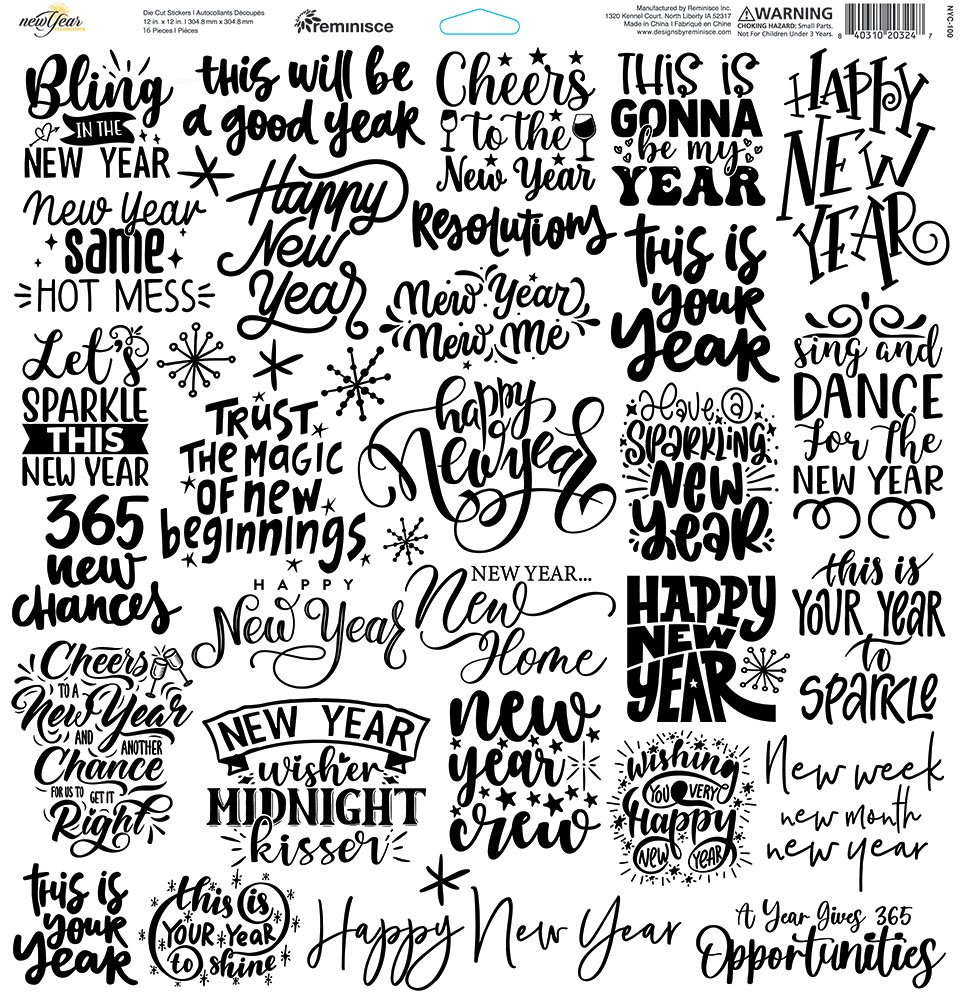 new Year
CELEBRATION
Die Cut Stickers | Autocollants Découpés
12 in. x 12 in. | 304.8 mm x 304.8 mm
16 Pieces | Pièces
reminisce
Manufactured by Reminisce Inc.
1320 Kennel Court, North Liberty IA 52317
Made in China | Fabriqué en Chine
www.designsbyreminisce.com
WARNING
CHOKING HAZARD: Small Parts.
Not For Children Under 3 Years.
8 40310 20324 7
NYC-100
Bling
IN THE
NEW YEAR
this will be
a good year
Cheers
to the
New Year
THIS IS
GONNA
be my
YEAR
HAPPY
NEW
YEAR
New Year
same
HOT MESS
Happy
New
Year
Resolutions
New Year,
New Me
THIS IS
your
year
Let's
SPARKLE
THIS
NEW YEAR
TRUST
THE MAGIC
OF new
beginnings
happy
New year
Have a
SPARKLING
New
Year
sing and
DANCE
For The
NEW YEAR
365
new
chances
HAPPY
New Year
NEW YEAR...
New
Home
HAPPY
NEW
YEAR
this is
YOUR Year
to
SPARKLE
Cheers
TO A
New Year
AND ANOTHER
Chance
FOR US TO GET IT
Right
NEW YEAR
wisher
MIDNIGHT
kisser
new
year
crew
wishing
YOU VERY
Happy
NEW YEAR
New week
new month
new year
THIS IS
your
year
this is
YOUR Year
to shine
Happy New Year
A Year Gives 365
Opportunities